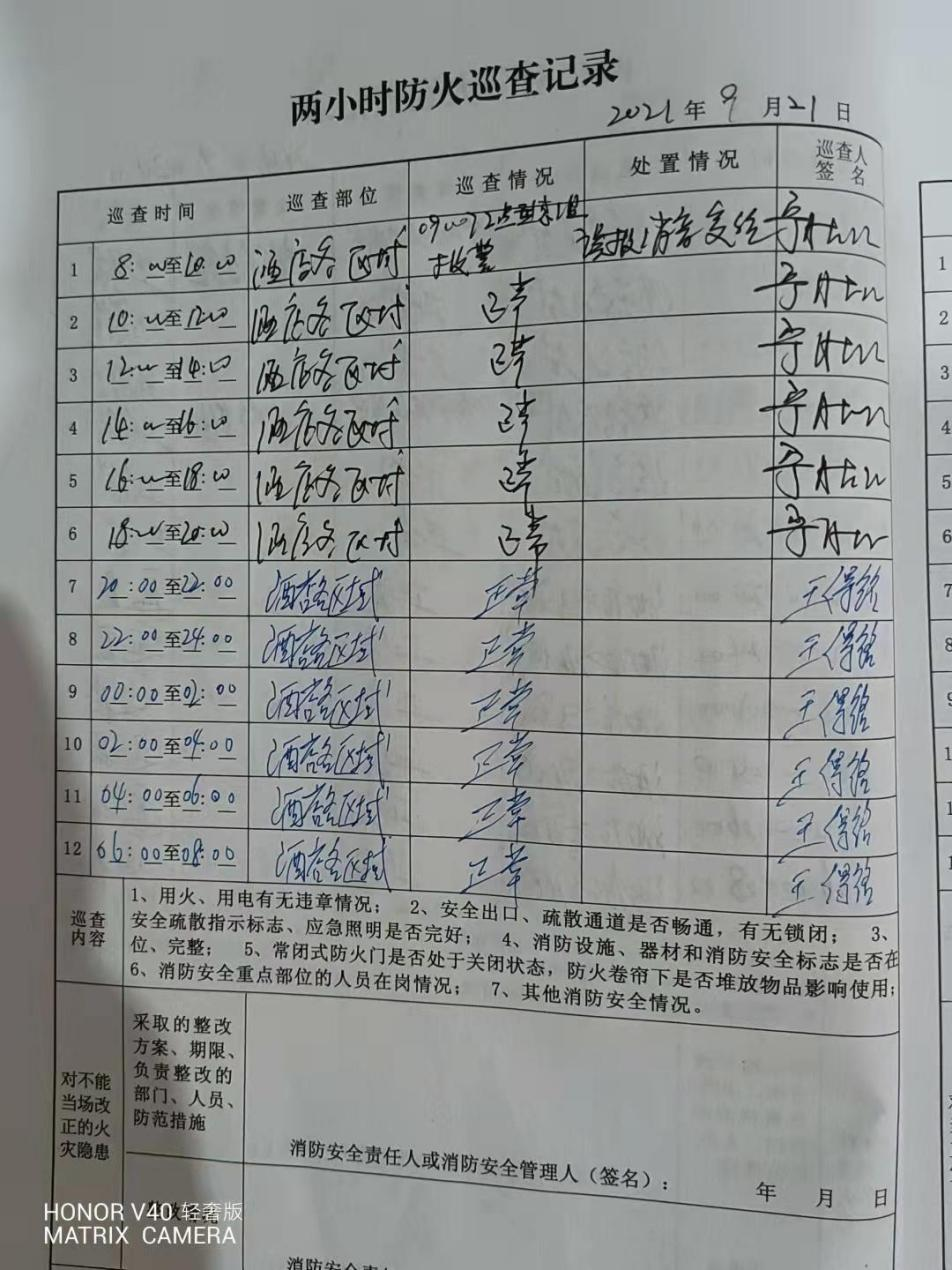 两小时防火巡查记录
2021年9月21日
巡查时间 巡查部位 巡查情况 处置情况 巡查人签名
1 8:00至10:00 酒店各区域 报警 误报,消音复位
2 10:00至12:00 酒店各区域 正常
3 12:00至14:00 酒店各区域 正常
4 14:00至16:00 酒店各区域 正常
5 16:00至18:00 酒店各区域 正常
6 18:00至20:00 酒店各区域 正常
7 20:00至22:00 酒店各区域 正常 王得铭
8 22:00至24:00 酒店各区域 正常 王得铭
9 00:00至02:00 酒店各区域 正常 王得铭
10 02:00至04:00 酒店各区域 正常 王得铭
11 04:00至06:00 酒店各区域 正常 王得铭
12 06:00至08:00 酒店各区域 正常 王得铭
巡查内容
1、用火、用电有无违章情况; 2、安全出口、疏散通道是否畅通,有无锁闭; 3、
安全疏散指示标志、应急照明是否完好; 4、消防设施、器材和消防安全标志是否在
位、完整; 5、常闭式防火门是否处于关闭状态,防火卷帘下是否堆放物品影响使用;
6、消防安全重点部位的人员在岗情况; 7、其他消防安全情况。
对不能
当场改
正的火
灾隐患
采取的整改
方案、期限、
负责整改的
部门、人员、
防范措施
消防安全责任人或消防安全管理人(签名):
年 月 日
消防安全责
HONOR V40 轻奢版
MATRIX CAMERA
1
2
3
4
5
6
7
8
9